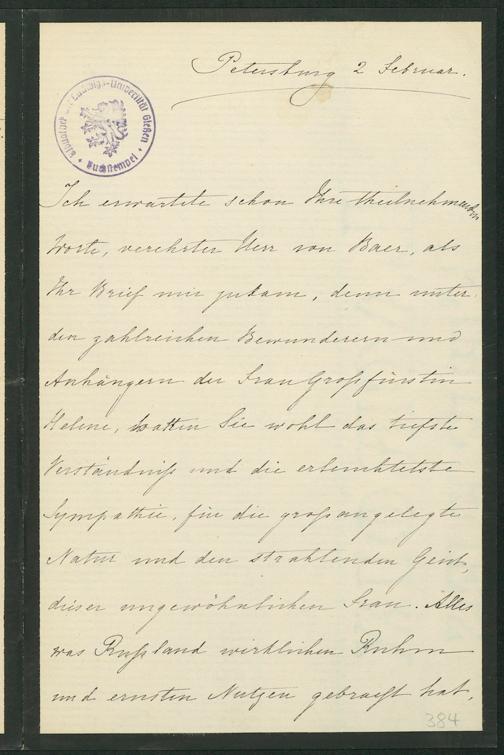 Petersburg 2 Februar.
Bibliothek der Ludwigs-Universität Gießen
Buchstempel
Ich erwartete schon Ihre theilnehmenden
Worte, verehrter Herr von Baer, als
Ihr Brief mir zukam, denn unter
den zahlreichen Bewunderern und
Anhängern der Frau Großfürstin
Helene, hatten Sie wohl das tiefste
Verständniß und die erleuchtetste
Sympathie, für die großangelegte
Natur und den strahlenden Geist,
dieser ungewöhnlichen Frau. Alles
was Rußland wirklichen Ruhm
und ernsten Nutzen gebracht hat,
384